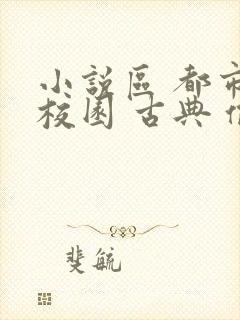 小說區 都市
校園 古典
斐毓